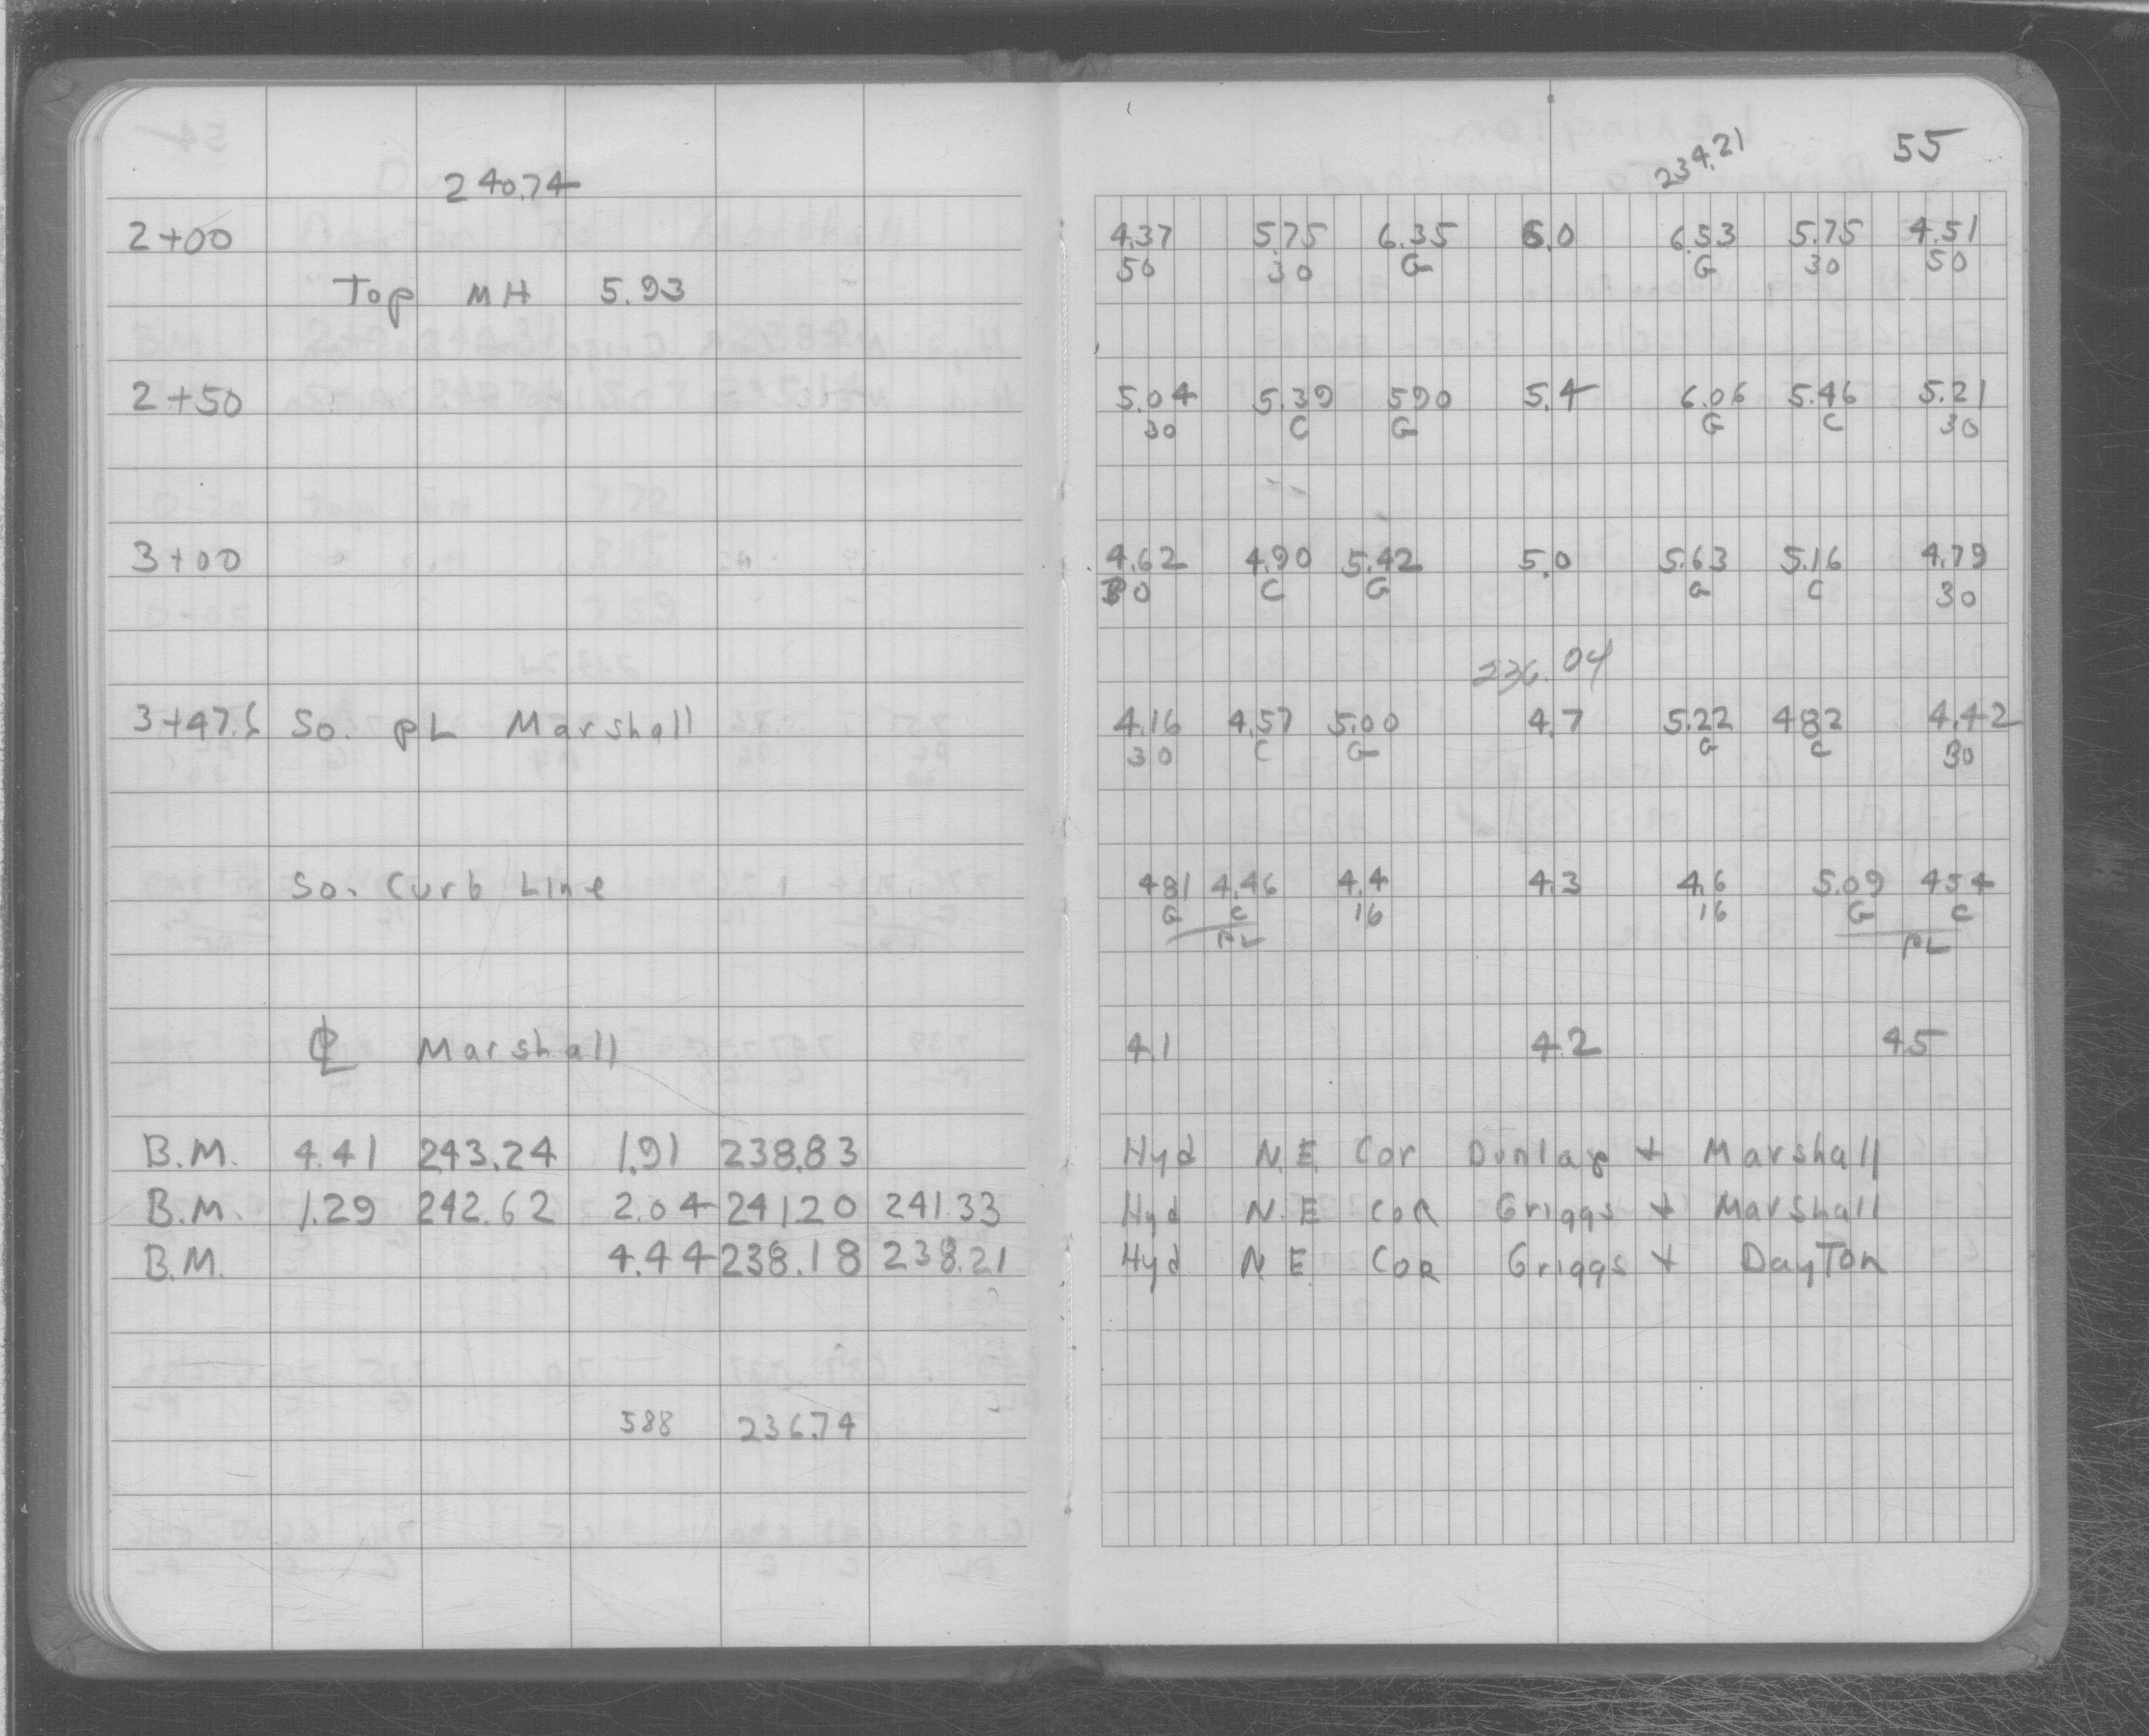 240.74
2+00
Top MH 5.93
2+50
3+00
3+47.6 So. PL Marshall
So. Curb Line
℄ Marshall
B.M. 4.41 243.24 1.91 238.83
B.M. 1.29 242.62 2.04 241.20 241.33
B.M. 4.44 238.18 238.21
588 236.74
55
234.21
4.37 5.75 6.35 6.0 6.53 5.75 4.51
50 30 G G 30 50
5.04 5.39 590 5.4 6.06 5.46 5.21
30 C G G C 30
4.62 4.90 5.42 5.0 5.63 5.16 4.79
30 C G G C 30
236.04
4.16 4.57 5.00 4.7 5.22 482 4.42
30 C G G C 30
481 4.46 4.4 4.3 4.6 5.09 454
G C 16 16 G C
PL PL
4.1 4.2 45
Hyd N.E. Cor Dunlap + Marshall
Hyd N.E Cor Griggs + Marshall
Hyd N E. Cor Griggs + Dayton